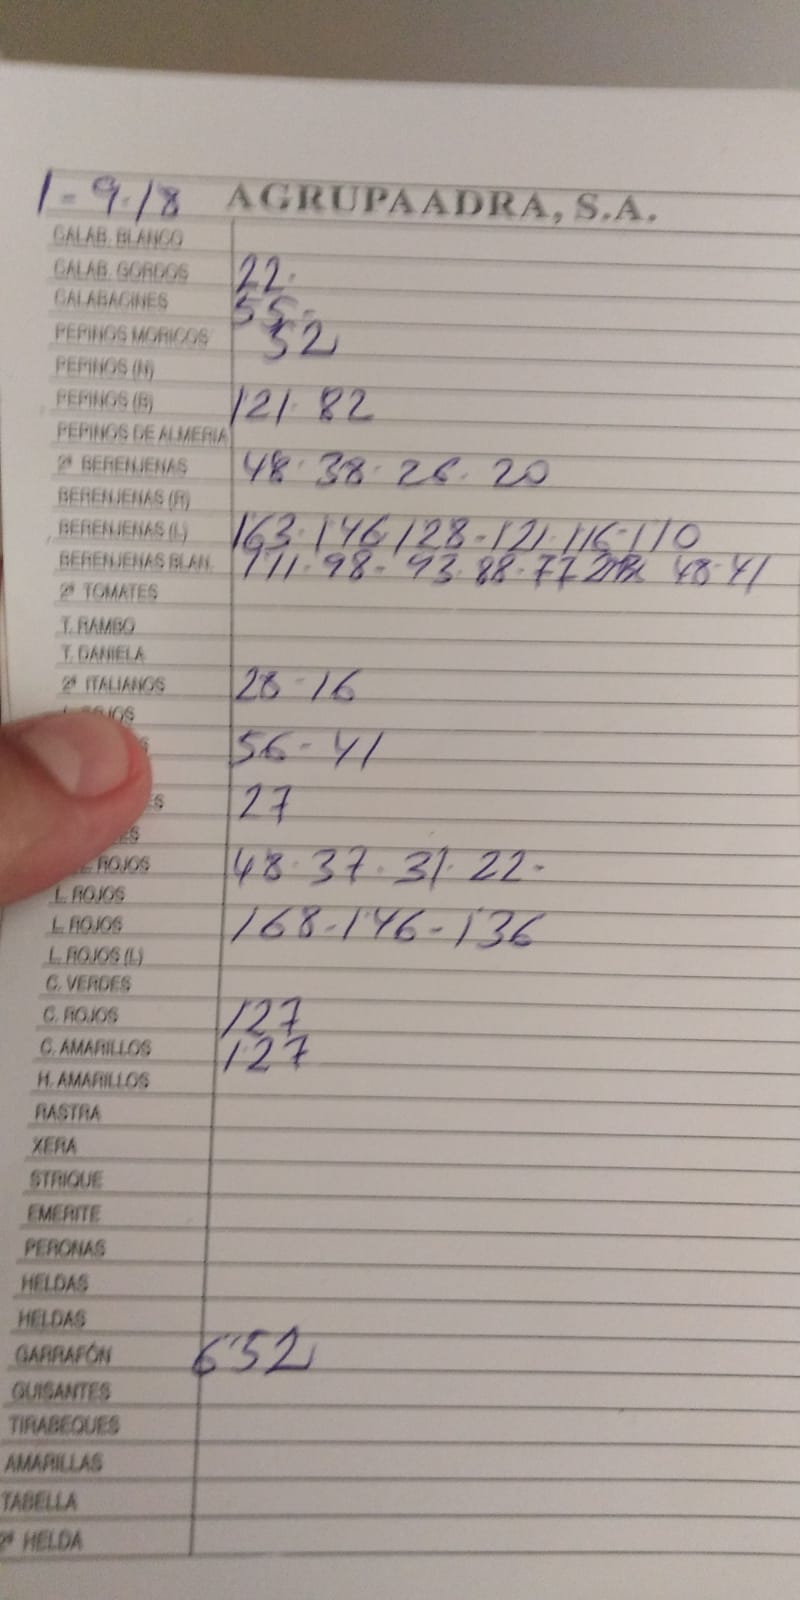 1-9-18 AGRUPAADRA, S.A.
CALAB. BLANCO
CALAB. GORDOS 22.
CALABACINES 55-
PEPINOS MORICOS 52
PEPINOS (N)
PEPINOS (B) 121. 82
PEPINOS DE ALMERIA
2ª BERENJENAS 48. 38. 26. 20
BERENJENAS (R)
BERENJENAS (L) 163. 146 128-121.116-110
BERENJENAS BLAN. 111-98-93.88-77 48-41
2ª TOMATES
T. RAMBO
T. DANIELA
2ª ITALIANOS 28-16
56-41
27
ROJOS 48.37.31.22.
L. ROJOS
L. ROJOS 168-146-136
L. ROJOS (L)
C. VERDES
C. ROJOS 127
C. AMARILLOS 127
H. AMARILLOS
RASTRA
XERA
STRIQUE
EMERITE
PERONAS
HELDAS
HELDAS
GARRAFÓN 6'52
GUISANTES
TIRABEQUES
AMARILLAS
TABELLA
2ª HELDA